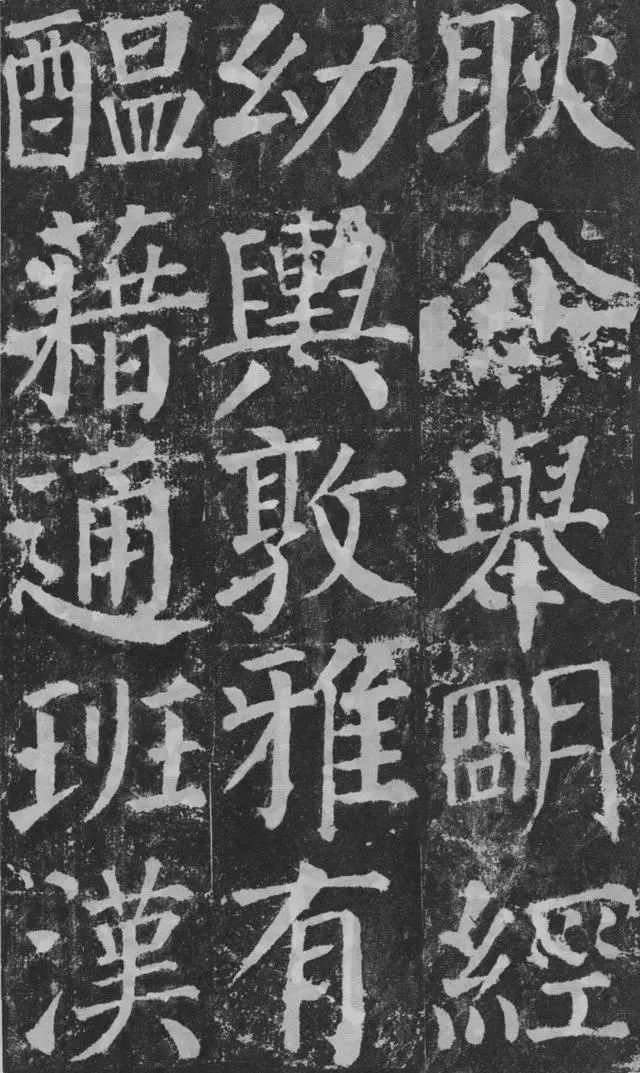 耿介舉明經
幼輿敦雅有
醖藉通班漢